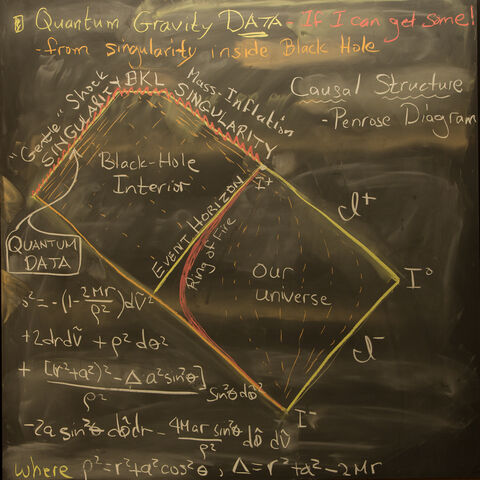 Quantum Gravity DATA - If I can get some!
- from singularity inside Black Hole
Causal Structure
- Penrose Diagram
"Gentle" Shock
SINGULARITY
BKL
Mass-Inflation
SINGULARITY
Black-Hole
Interior
EVENT HORIZON
Ring of Fire
Our
universe
I⁺
𝓘⁺
I⁰
𝓘⁻
I⁻
QUANTUM
DATA
s² = -(1-2Mr/ρ²)dṽ²
+2drdṽ + ρ² dθ²
+ [(r²+a²)² - Δa²sin²θ]/ρ² sin²θ dΦ̃²
-2a sin²θ dΦ̃ dr - 4Mar sin²θ/ρ² dΦ̃ dṽ
where ρ²=r²+a²cos²θ, Δ=r²+a²-2Mr